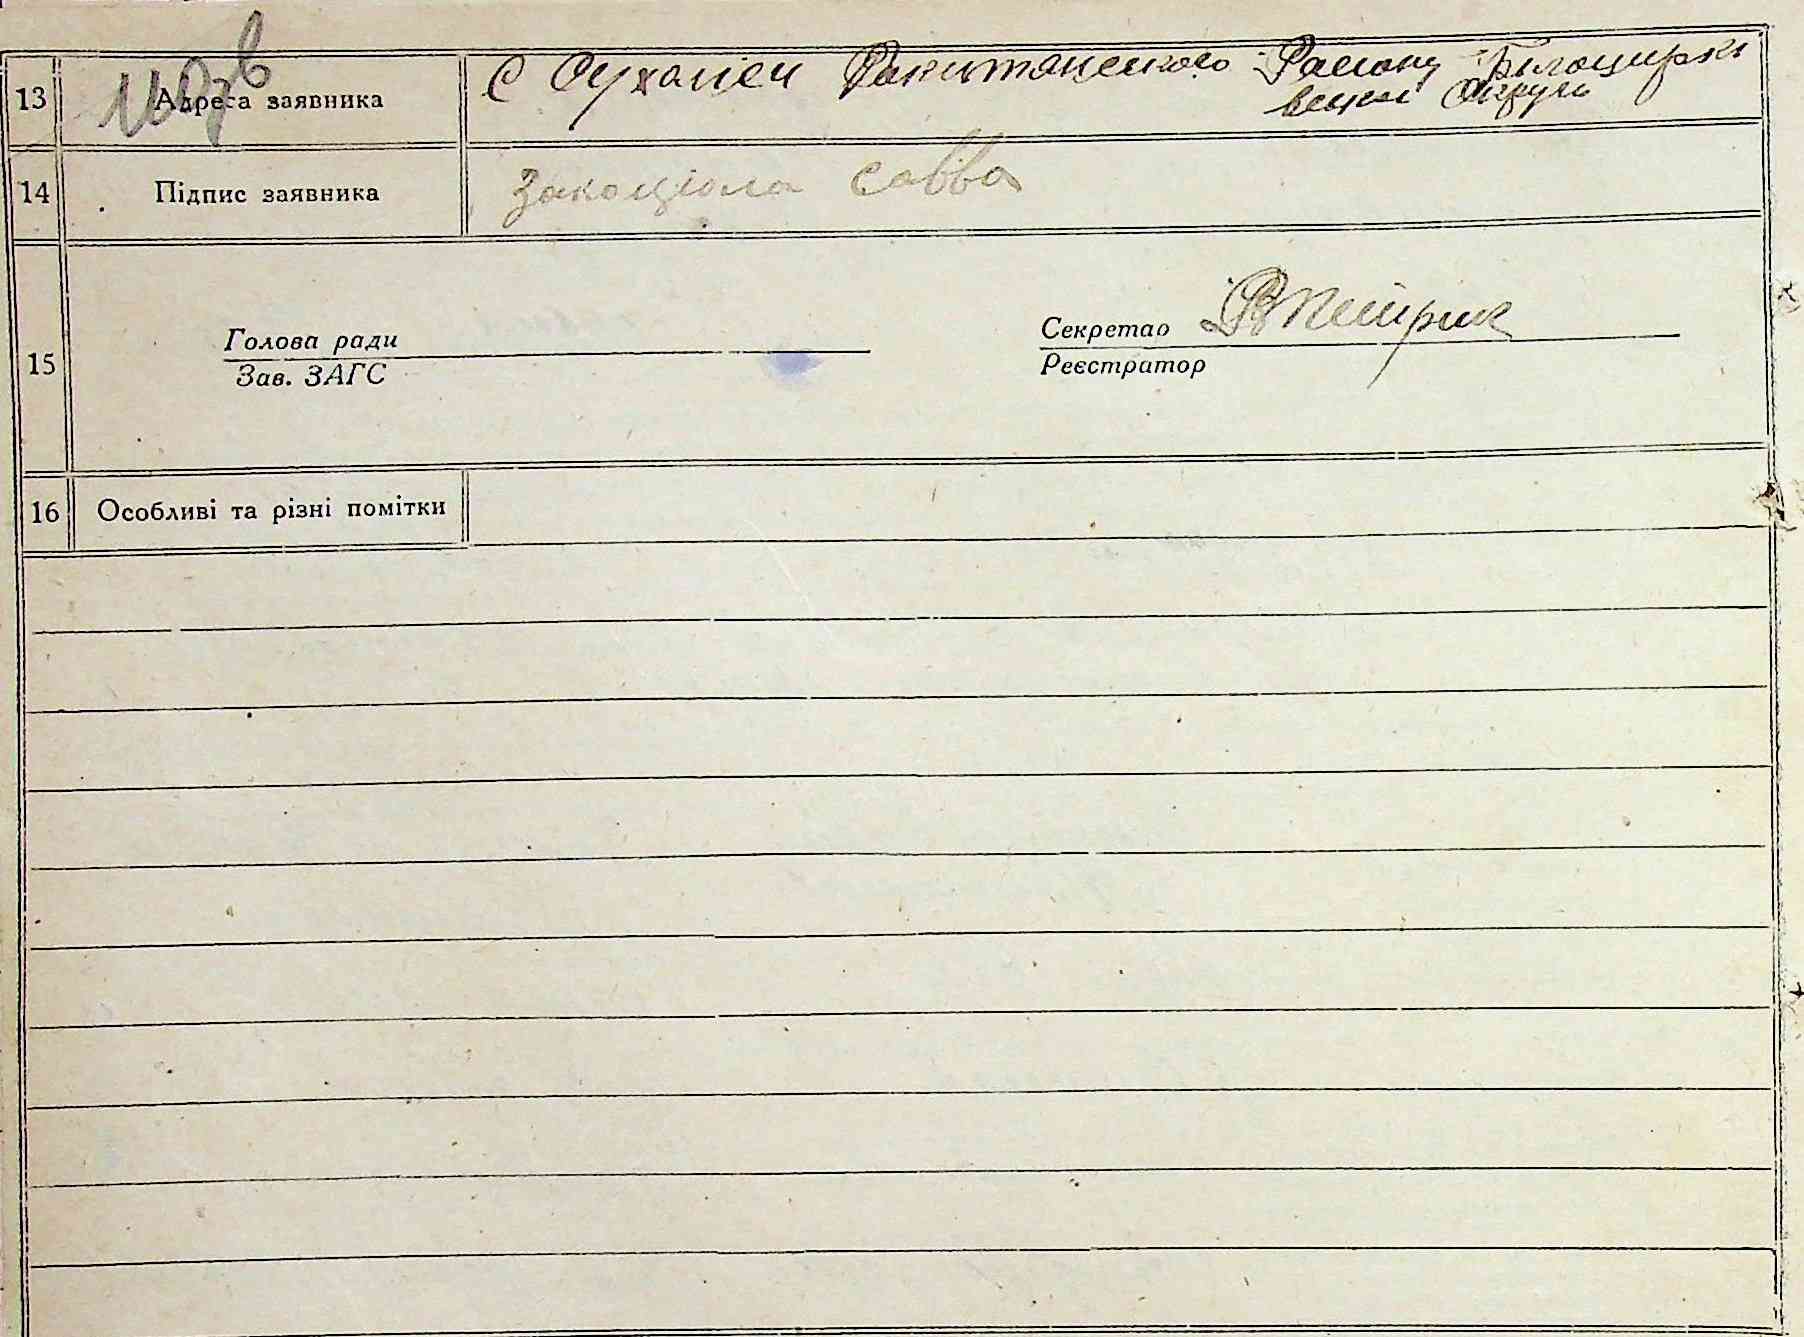 13 Адреса заявника С Сухалісы Ракитянського Району Білоциркі
вецкої Округи
14 Підпис заявника Закоціола Савва
Секретар
Голова ради
15
Зав. ЗАГС Реєстратор
16 Особливі та різні помітки